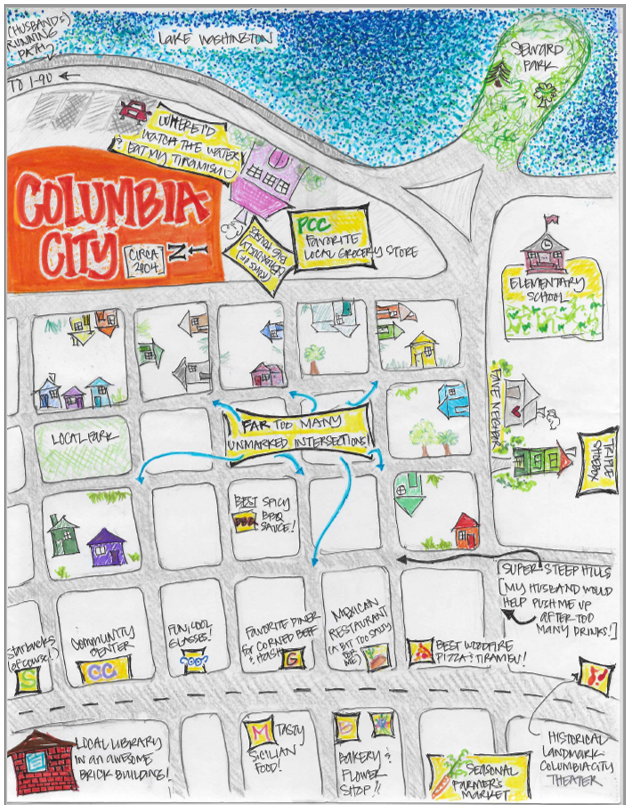 (HUSBANDS)
RUNNING
PATH
LAKE WASHINGTON
SEWARD
PARK
TO I-90
WHERE I'D
WATCH THE WATER
& EAT MY TIRAMISU
COLUMBIA
CITY
[CIRCA
2004]
N
PCC
FAVORITE
LOCAL GROCERY STORE
BIG HOUSES
ELEMENTARY
SCHOOL
LOCAL PARK
FAR TOO MANY
UNMARKED INTERSECTIONS!
FAVE NEIGHBOR
BEST SPICY
BBQ
SAUCE!
SUPER STEEP HILLS
[MY HUSBAND WOULD
HELP PUSH ME UP
AFTER TOO
MANY DRINKS!]
Starbucks
(of course!)
S
COMMUNITY
CENTER
CC
FUN, COOL
GLASSES!
FAVORITE DINER
for CORNED BEEF
& HASH
G
MEXICAN
RESTAURANT
(A BIT TOO SPICY
FOR ME)
BEST WOODFIRE
PIZZA & TIRAMISU!
LOCAL LIBRARY
IN AN AWESOME
BRICK BUILDING!
M TASTY
SICILIAN
FOOD!
B
BAKERY &
FLOWER
SHOP!!
SEASONAL
FARMERS
MARKET
HISTORICAL
LANDMARK:
COLUMBIA CITY
THEATER